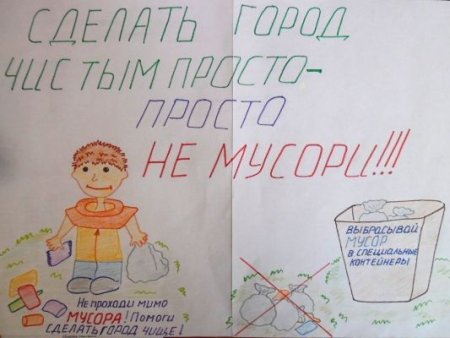 СДЕЛАТЬ ГОРОД
ЧИСТЫМ ПРОСТО-
ПРОСТО
НЕ МУСОРИ!!!
ВЫБРАСЫВАЙ
МУСОР
В СПЕЦИАЛЬНЫЕ
КОНТЕЙНЕРЫ
Не проходи мимо
МУСОРА! Помоги
СДЕЛАТЬ ГОРОД ЧИЩЕ!